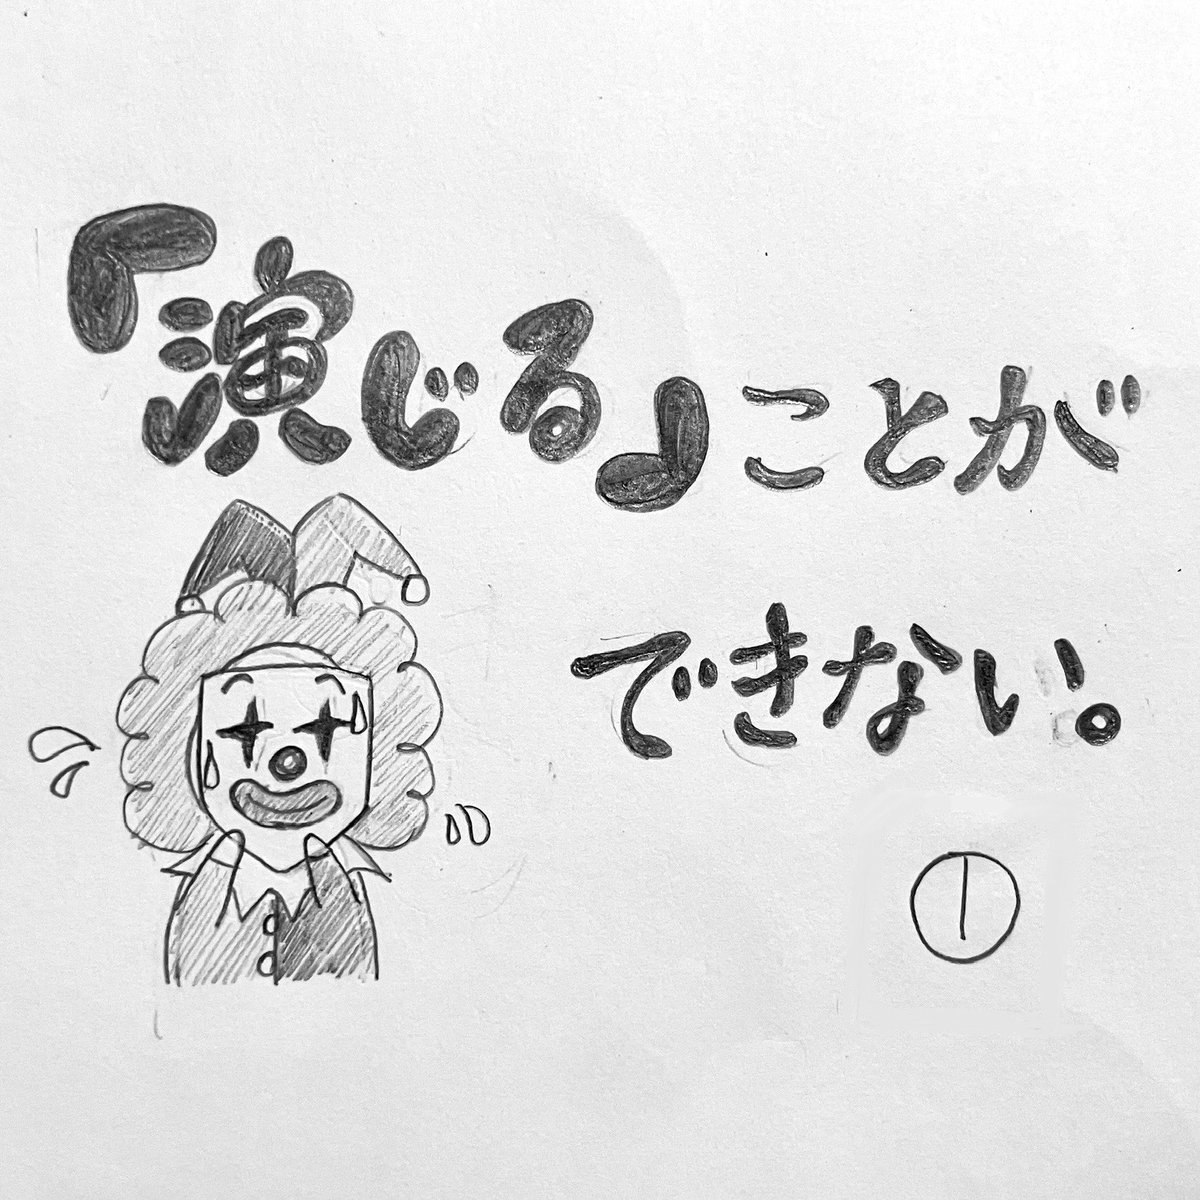 「演じる」ことが
できない。
①